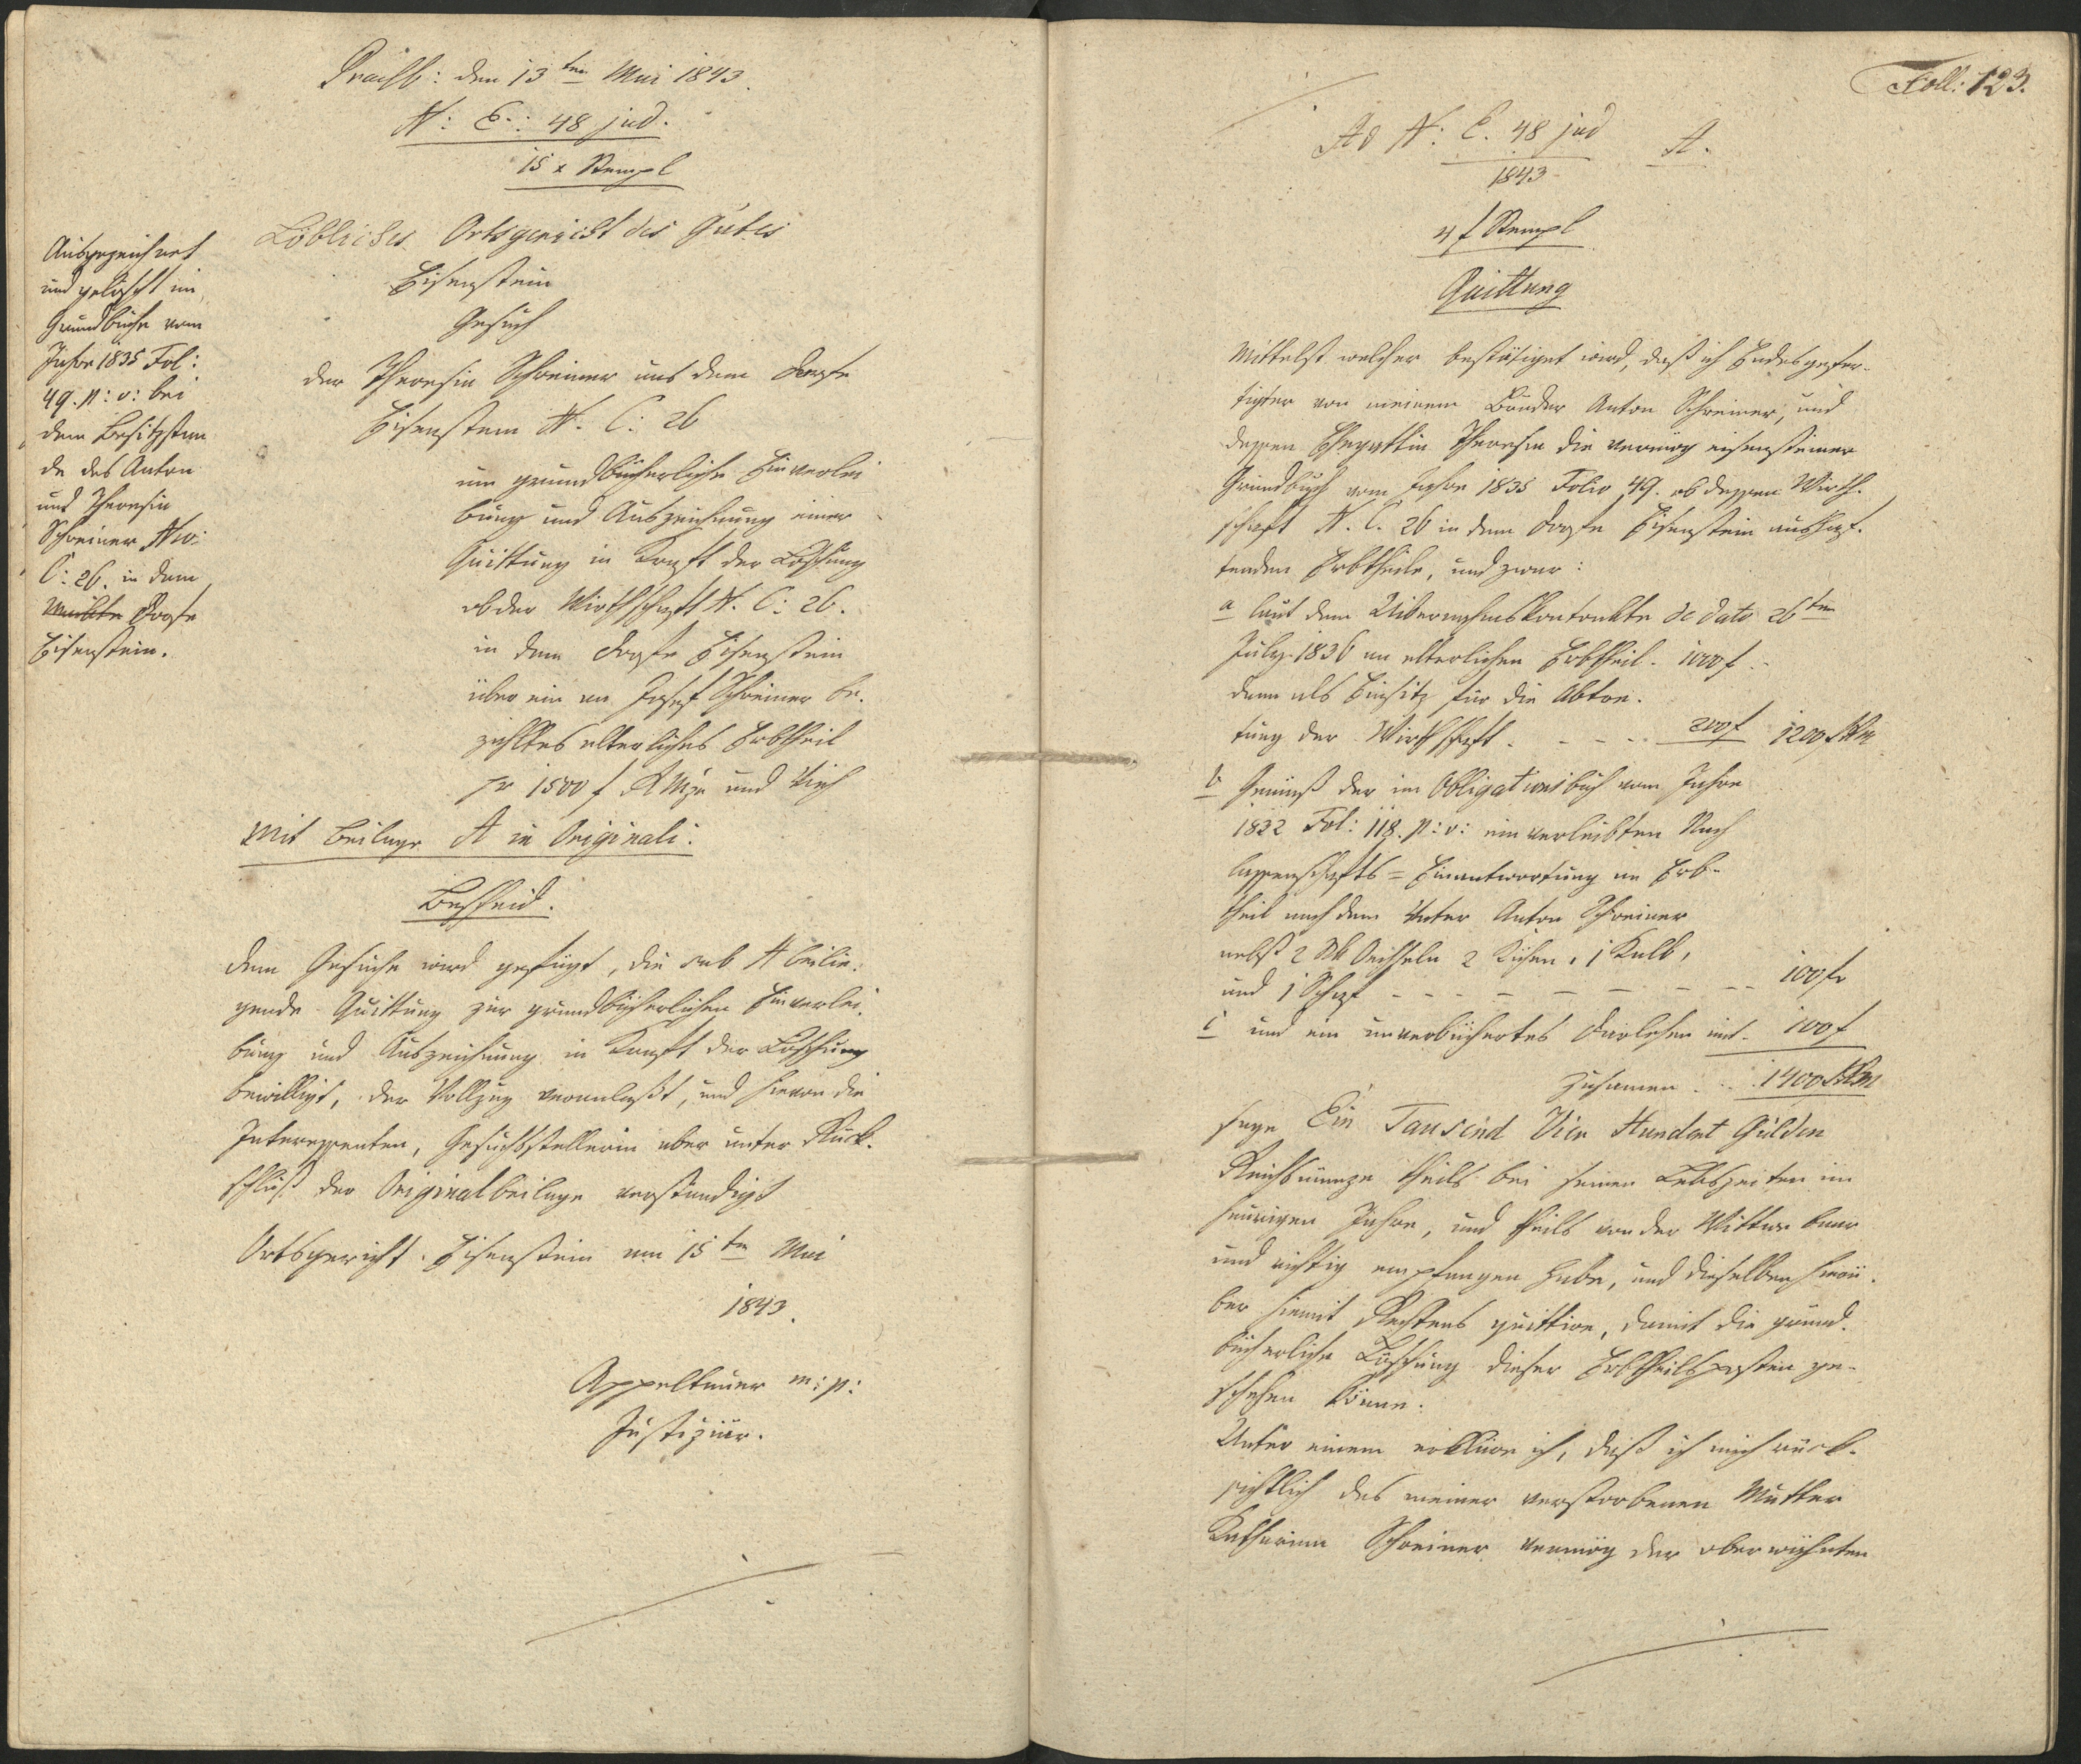 Präsb: den 13ten Mai 1843.
N: E.: 48 jud.
15 x Stempl
Löbliches Ortsgericht des Gutes
Eisenstein
Gesuch
der Theresia Schreiner aus dem Dorfe
Eisenstein N. C: 26
um grundbücherliche Einverlei
bung und Auszeichnung einer
Quittung in Kraft der Löschung
ob der Wirthschaft N. C: 26.
in dem Dorfe Eisenstein
über ein an Josef Schreiner be-
zahltes elterliches Erbtheil
pr 1500 f RMze und Vieh
Mit Beilage A in Originali.
Bescheid.
Dem Gesuche wird gefügt, die sub A beilie-
gende Quittung zur grundbücherlichen Einverlei-
bung und Auszeichnung in Kraft der Löschung
bewilligt, der Vollzug veranlaßt, und hievon die
Interessenten, Gesuchstellerin aber unter Rück-
schluß der Originalbeilage verständigt
Ortsgericht Eisenstein am 15ten Mai
1843.
Appeltauer m: p:
Justiziär.
Ausgezeichnet
und gelöscht im
Grundbuche vom
Jahre 1835 Fol:
49. p: v: bei
dem Besitzstan
de des Anton
und Theresia
Schreiner Nro:
C: 26. in dem
Markte Dorfe
Eisenstein.
Foll: 123.
Ad N: E. 48 jud A.
1843
4 f Stempl
Quittung
Mittelst welcher bestätiget wird, daß ich Endesgefer-
tigter von meinem Bruder Anton Schreiner, und
dessen Ehegattin Theresia die vermög eisensteiner
Grundbuch vom Jahre 1835 Folio 49. ob dessen Wirth-
schaft N. C. 26 in dem Dorfe Eisenstein aushaf-
tenden Erbtheile, und zwar:
a laut dem Uibernahmskontrakte de dato 26ten
July 1836 an elterlichen Erbtheil. 1000 f.
dann als Einsitz für die Abtre-
tung der Wirthschaft. - - - 200 f 1200 f RM
b Gemäß der im Obligationsbuch vom Jahre
1822 Fol: 118. p: v: einverleibten Nach
lassenschafts = Einantwortung an Erb-
theil nach dem Vater Anton Schreiner
nebst 2 Stk Oechseln 2 Kühen, 1 Kalb,
und 1 Schaf - - - - - - - - 100 fr
c und ein unverbüchertes Darlehen mit. 100 f
Zusamen . . 1400 f RM
sage Ein Tausend Vier Hundert Gulden
Reichsmünze theils bei seinen Lebszeiten im
heurigen Jahre, und theils von der Wittwe baar
und richtig empfangen habe, und dieselben hierü-
ber hiemit Rechtens quittire, damit die grund-
bücherliche Löschung dieser Erbtheilsposten ge-
schehen könne.
Unter einem erkläre ich, daß ich mich rück-
sichtlich des meiner verstorbenen Mutter
Katharina Schreiner vermög der oberwähnten